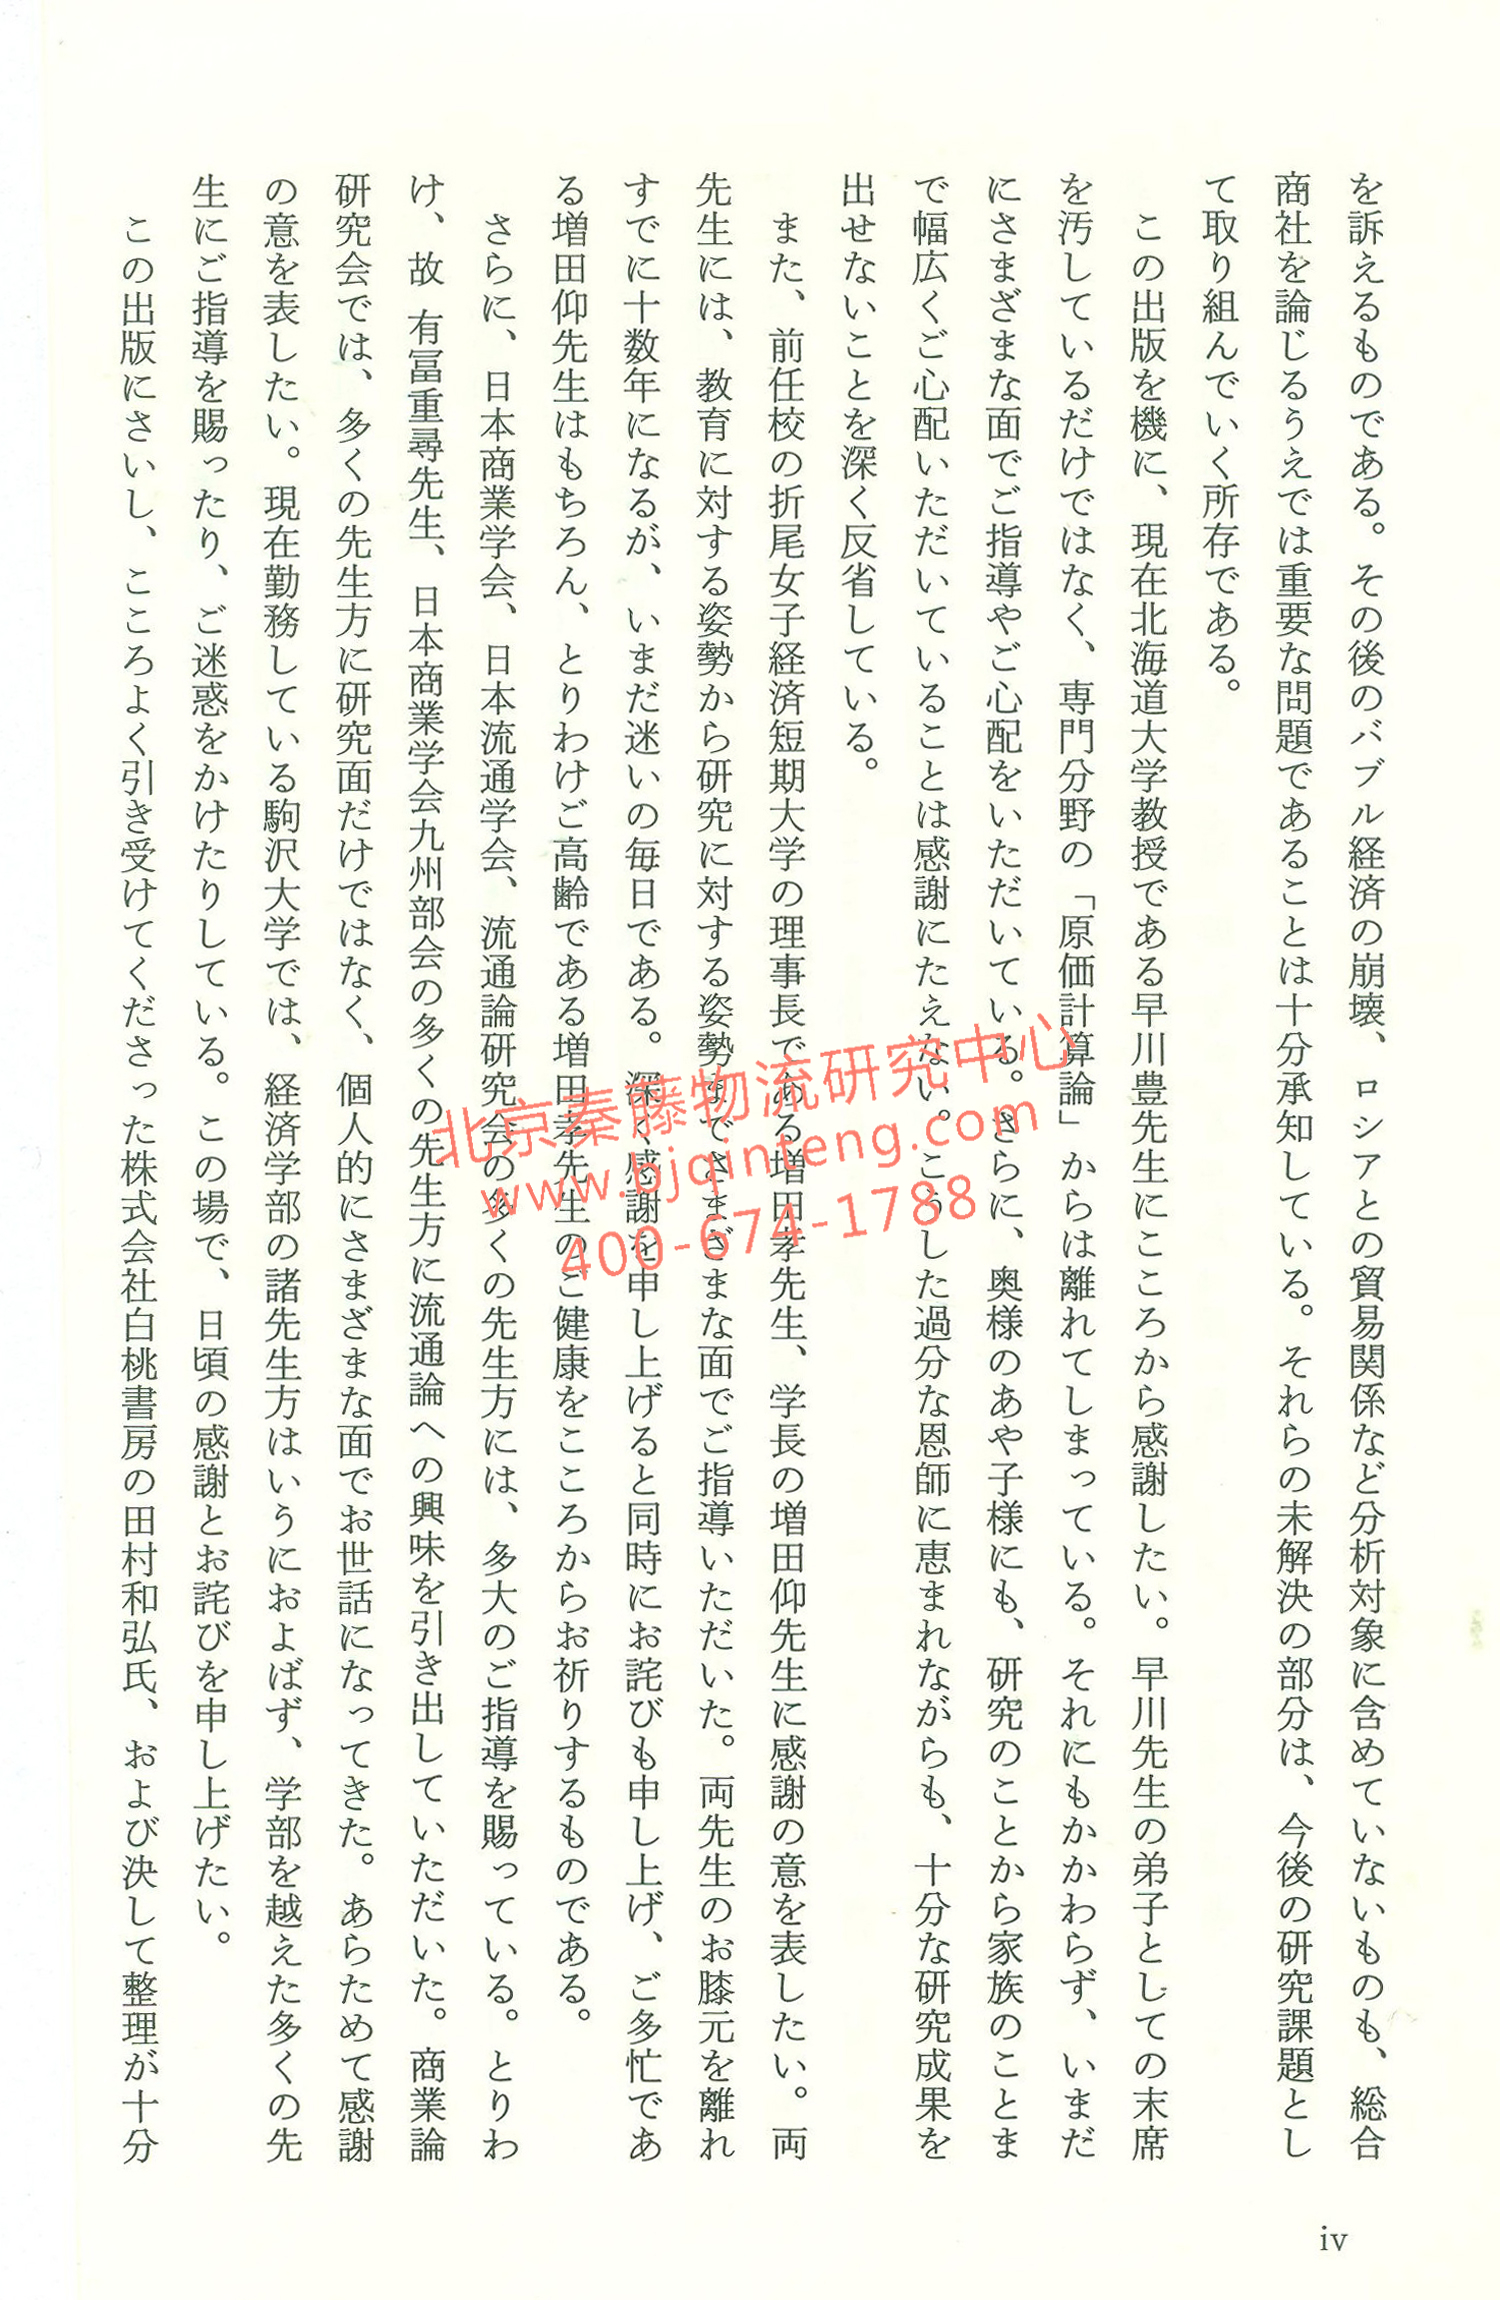 を訴えるものである。その後のバブル経済の崩壊、ロシアとの貿易関係など分析対象に含めていないものも、総合
商社を論じるうえでは重要な問題であることは十分承知している。それらの未解決の部分は、今後の研究課題とし
て取り組んでいく所存である。
この出版を機に、現在北海道大学教授である早川豊先生にこころから感謝したい。早川先生の弟子としての末席
を汚しているだけではなく、専門分野の「原価計算論」からは離れてしまっている。それにもかかわらず、いまだ
にさまざまな面でご指導やご心配をいただいている。さらに、奥様のあや子様にも、研究のことから家族のことま
で幅広くご心配いただいていることは感謝にたえない。こうした過分な恩師に恵まれながらも、十分な研究成果を
出せないことを深く反省している。
また、前任校の折尾女子経済短期大学の理事長である増田孝先生、学長の増田仰先生に感謝の意を表したい。両
先生には、教育に対する姿勢から研究に対する姿勢までさまざまな面でご指導いただいた。両先生のお膝元を離れ
すでに十数年になるが、いまだ迷いの毎日である。深く感謝を申し上げると同時にお詫びも申し上げ、ご多忙であ
る増田仰先生はもちろん、とりわけご高齢である増田孝先生のご健康をこころからお祈りするものである。
さらに、日本商業学会、日本流通学会、流通論研究会の多くの先生方には、多大のご指導を賜っている。とりわ
け、故 有冨重尋先生、日本商業学会九州部会の多くの先生方に流通論への興味を引き出していただいた。商業論
研究会では、多くの先生方に研究面だけではなく、個人的にさまざまな面でお世話になってきた。あらためて感謝
の意を表したい。現在勤務している駒沢大学では、経済学部の諸先生方はいうにおよばず、学部を越えた多くの先
生にご指導を賜ったり、ご迷惑をかけたりしている。この場で、日頃の感謝とお詫びを申し上げたい。
この出版にさいし、こころよく引き受けてくださった株式会社白桃書房の田村和弘氏、および決して整理が十分
iv
北京秦藤物流研究中心
www.bjqinteng.com
400-674-1788